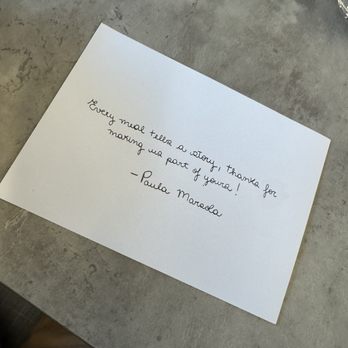 Every meal tells a story, thanks for
making us part of yours!
-Paula